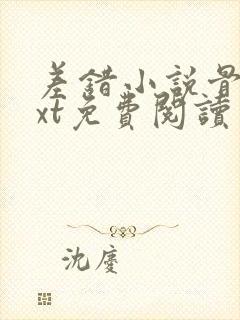 差錯小說骨
xt免費閱讀
沈慶